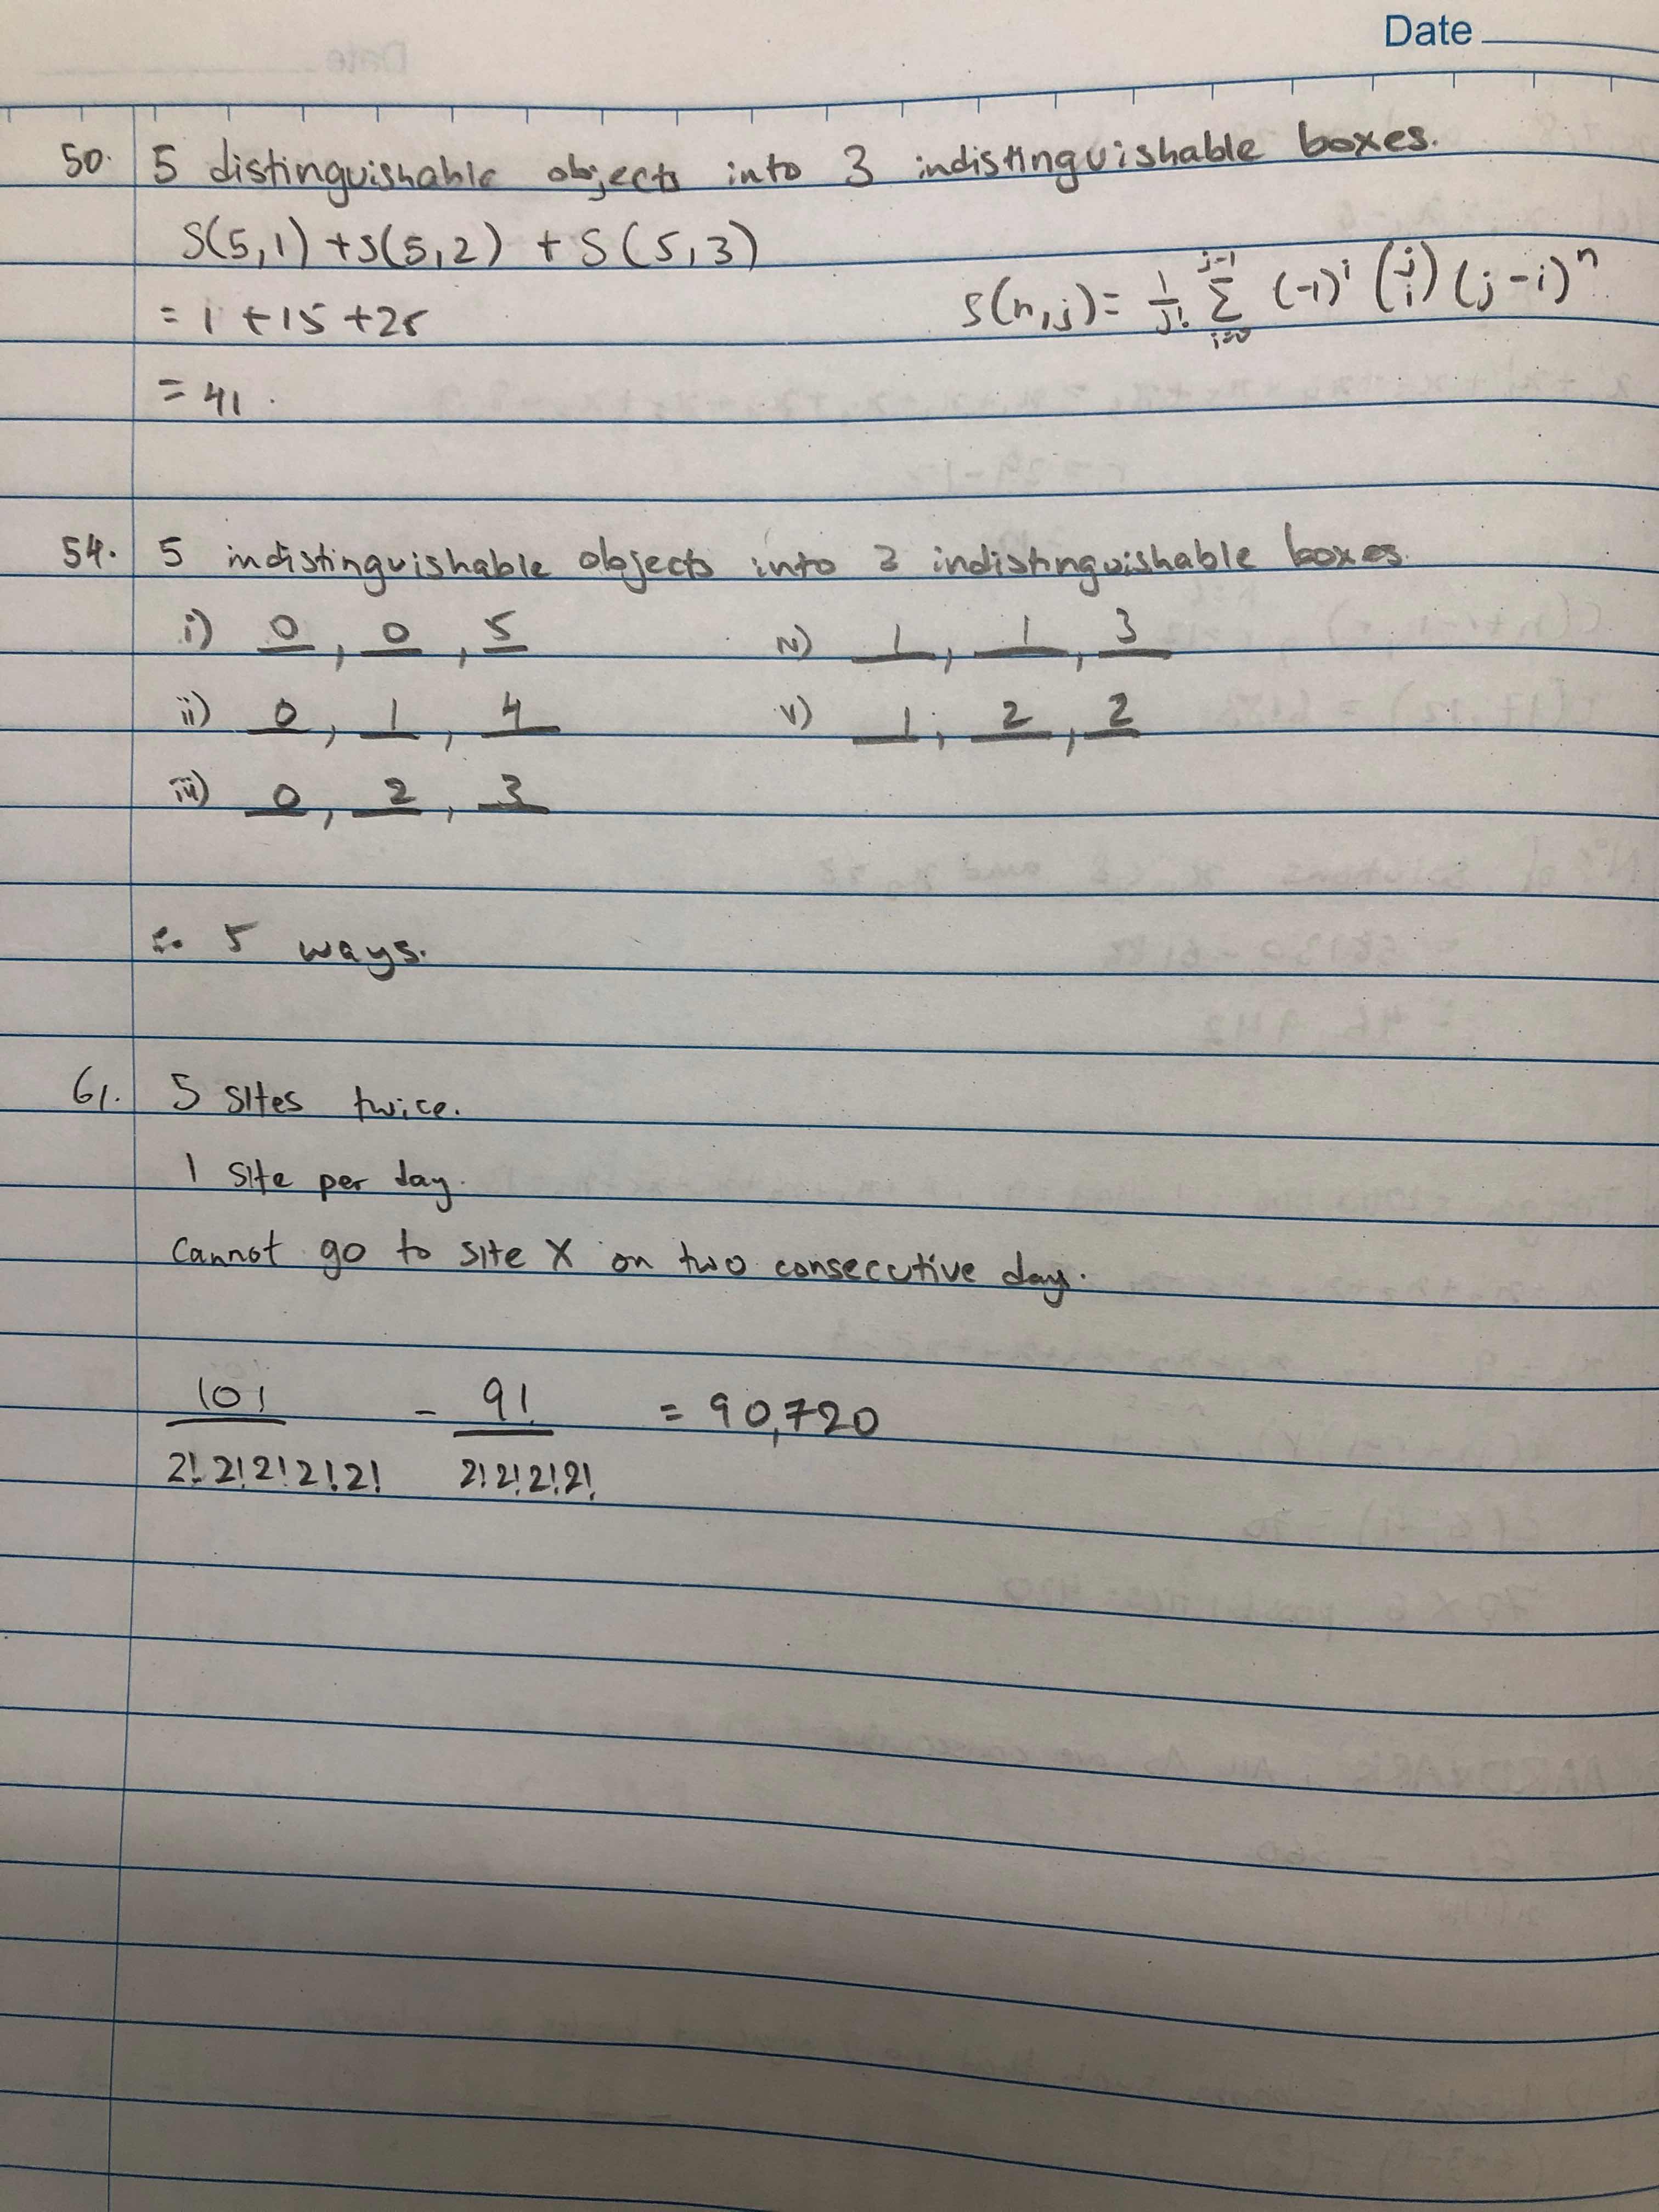 Date
50. 5 distinguishable objects into 3 indistinguishable boxes.
S(5,1) + S(5,2) + S(5,3)
= 1 + 15 + 25
S(n,j) = 1/j! Σ_{i=0}^{j-1} (-1)^i (j i) (j-i)^n
= 41.
54. 5 indistinguishable objects into 3 indistinguishable boxes.
i) 0, 0, 5
iv) 1, 1, 3
ii) 0, 1, 4
v) 1, 2, 2
iii) 0, 2, 3
∴ 5 ways.
61. 5 sites twice.
1 site per day.
Cannot go to site X on two consecutive day.
10!/2!2!2!2!2! - 9!/2!2!2!2! = 90,720